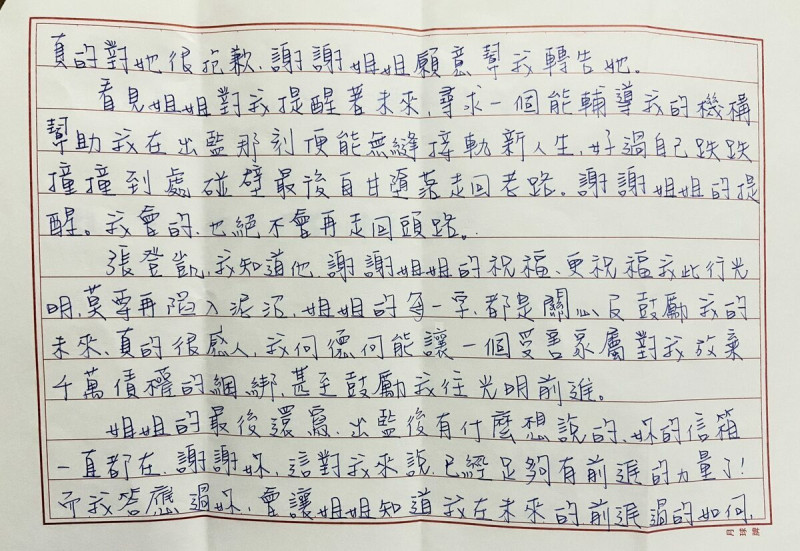 真的對她很抱歉、謝謝姐姐願意幫我轉告她。
看見姐姐對我提醒著未來、尋求一個能輔導我的機構
幫助我在出監那刻便能無縫接軌新人生、好過自己跌跌
撞撞到處碰壁最後自甘墮落走回老路。謝謝姐姐的提
醒。我會的、也絕不會再走回頭路。
張登凱、我知道他、謝謝姐姐的祝福、更祝福我此行光
明、莫要再陷入泥沼、姐姐的每一字、都是關心及鼓勵我的
未來、真的很感人、我何德何能讓一個受害家屬對我放棄
千萬債權的綑綁、甚至鼓勵我往光明前進。
姐姐的最後還寫、出監後有什麼想說的、妳的信箱
一直都在、謝謝妳、這對我來說、已經足夠有前進的力量了!
而我答應過妳、會讓姐姐知道我在未來的前進過的如何、
月球牌